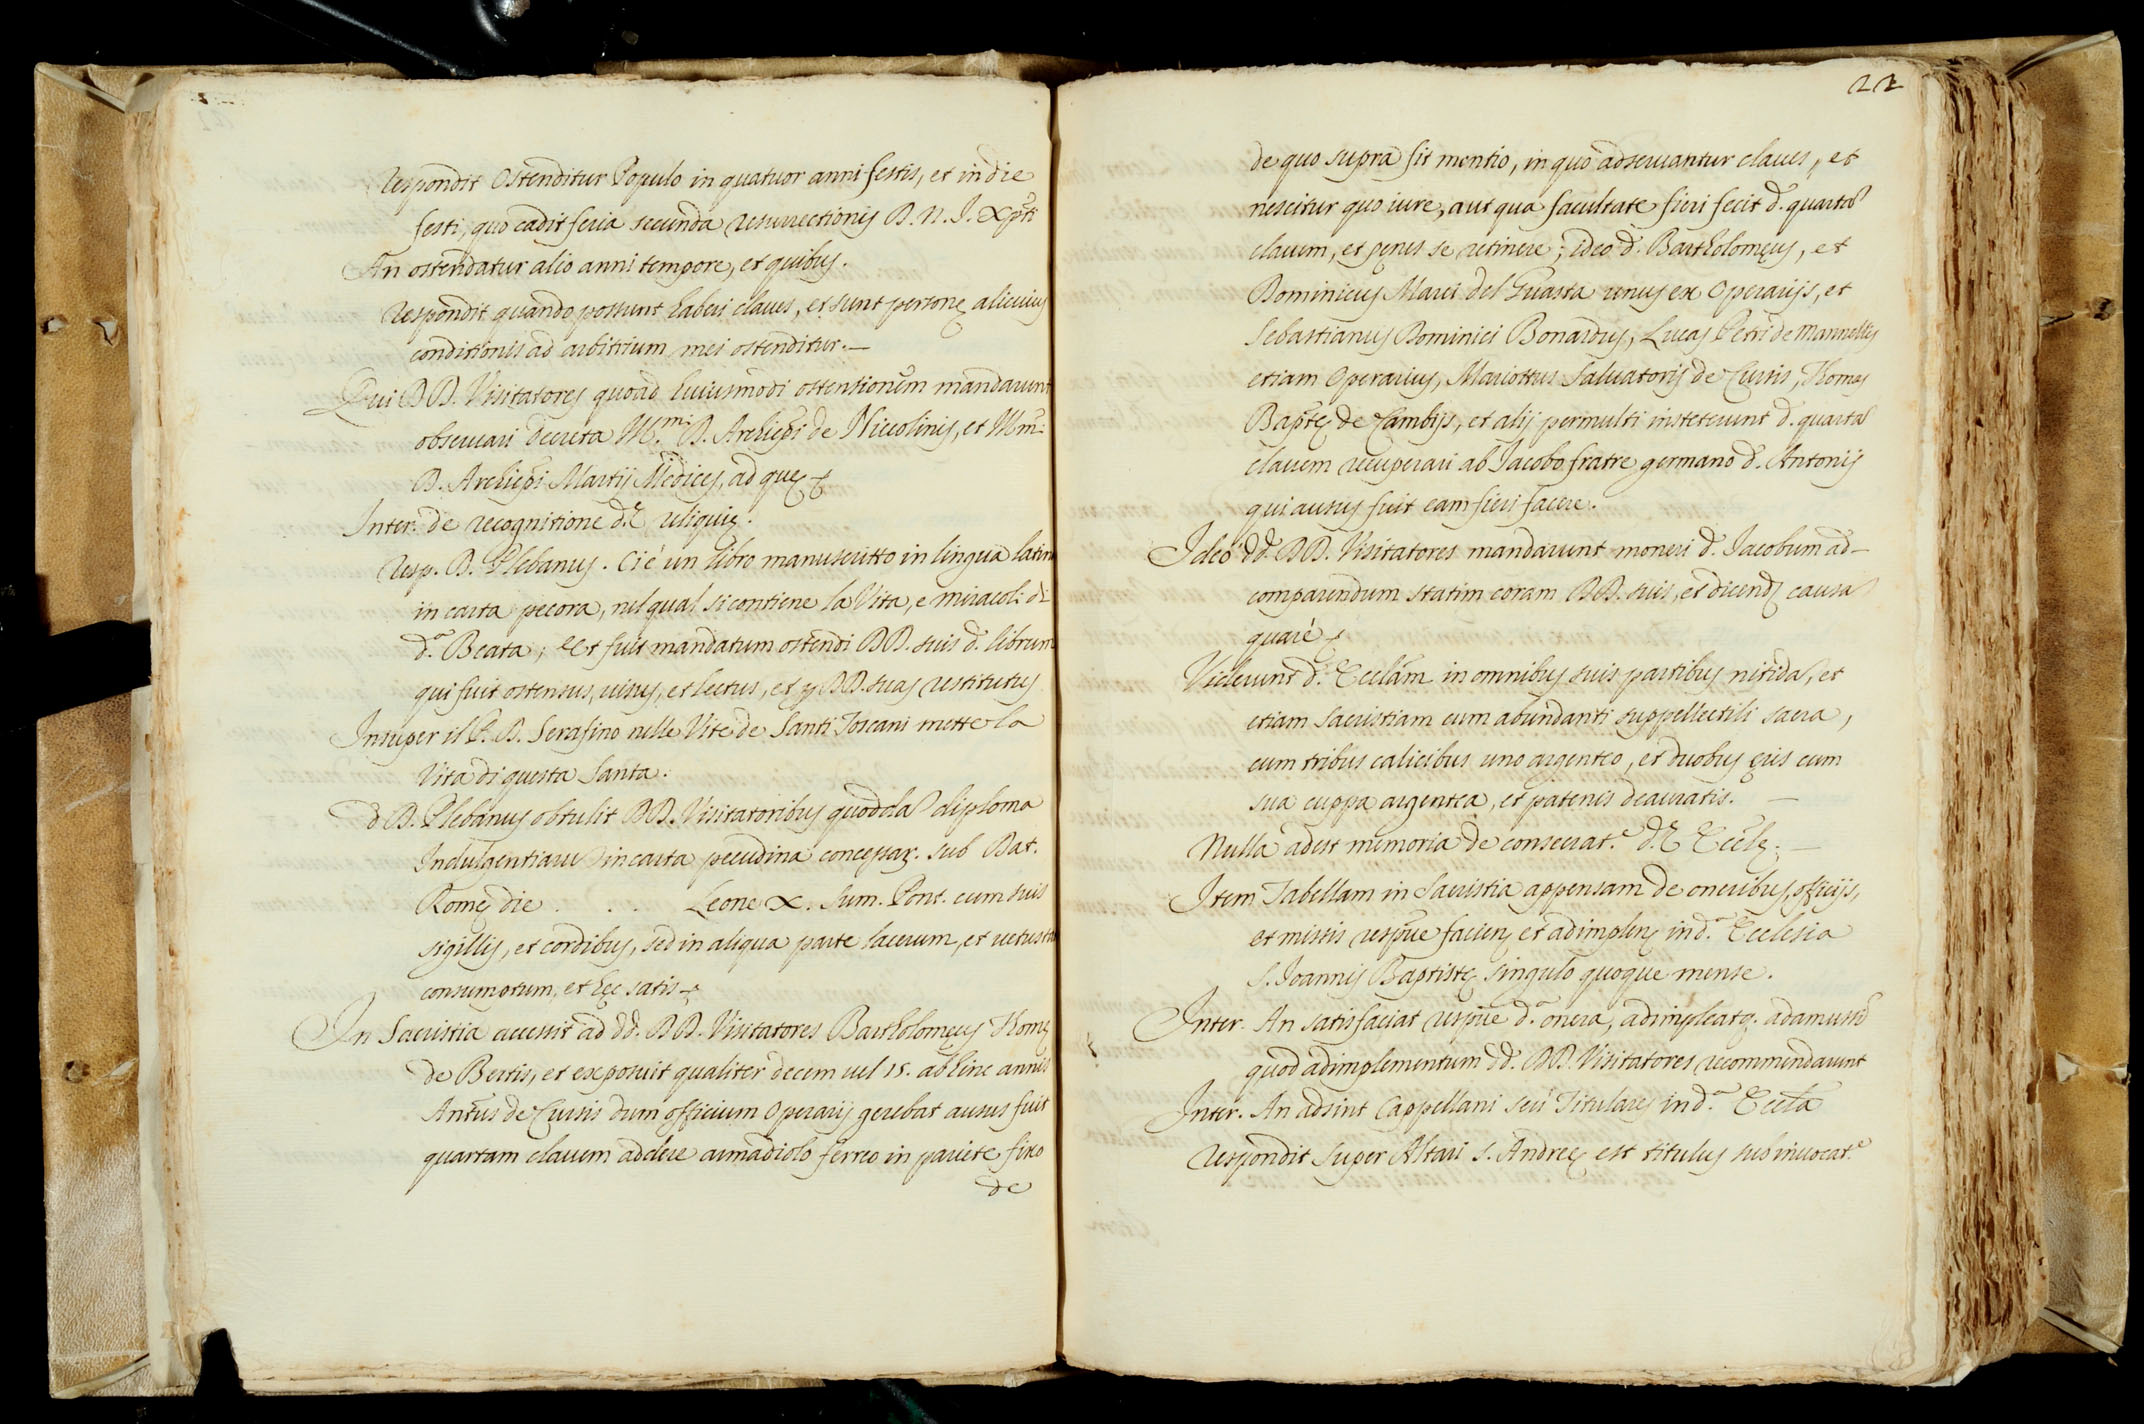 Respondit Ostenditur Populo in quatuor anni festis, et in die
festi, quo cadit feria secunda resurrectionis D. N. J. Xpti
An ostendatur alio anni tempore, et quibus.
Respondit quando possunt haberi claves, et sunt personę alicuius
conditionis ad arbitrium mei ostenditur.—
Qui DD. Visitatores quoad huiusmodi ostensionem mandarunt
observari decreta Ill.mi D. Archiepi de Niccolinis, et Illmi
D. Archiepi Martij Medices, ad quę
Inter. de recognitione d.ę reliquię.
Resp. D. Plebanus. Ci è un libro manuscritto in lingua latina
in carta pecora, nel qual si contiene la Vita, e miracoli di
d.a Beata; Et fuit mandatum ostendi DD. suis d. librum
qui fuit ostensus, visus, et lectus, et p DD. suas restitutus
Insuper il P. D. Serafino nelle Vite de Santi Toscani mette la
Vita di questa Santa.
d D. Plebanus obtulit DD. Visitatoribus quodda diploma
Indulgentiaru in carta pecudina concessaz. sub Dat.
Romę die . . . Leone X. Sum. Pont. cum suis
sigillis, et cordibus, sed in aliqua parte lacerum, et vetustate
consumptum, et hęc satis
In Sacristia accessit ad dd. DD. Visitatores Bartholomęus Thomę
de Bertis, et exposuit qualiter decem vel 15. abhinc annis
Antus de Cursis dum officium Operarij gerebat ausus fuit
quartam clavem addere armadiolo ferreo in pariete fixo
de
22
de quo supra fit mentio, in quo adservantur claves, et
nescitur quo iure, aut qua facultate fieri fecit d. quarta
clavem, et penes se retinere; ideo d. Bartholomęus, et
Dominicus Marci del Guasta unus ex Operarijs, et
Sebastianus Dominici Bonardus, Lucas Petri de Mannellis
etiam Operarius, Mariottus Salvatoris de Cursis, Thomas
Baptę de Cambijs, et alij permulti insteterunt d. quarta
clavem recuperari ab Jacobo fratre germano d. Antonij
qui ausus fuit eam fieri facere.
Ideo dd. DD. Visitatores mandarunt moneri d. Jacobum ad—
comparendum statim coram DD. suis, et dicend causa
quare
Viderunt d. Ecclam in omnibus suis partibus nitida, et
etiam Sacristiam cum abundanti suppellectili sacra,
cum tribus calicibus uno argenteo, et duobus ęris cum
sua cuppa argentea, et patenis deauratis. —
Nulla adest memoria de consecrat.e d.ę Ecclę. —
Item Tabellam in Sacristia appensam de oneribus, officijs,
et missis respve facien et adimplen in d.a Ecclesia
S. Joannis Baptistę singulo quoque mense.
Inter. An satisfaciat respve d.a onera, adimpleatq. adamussi
quod adimplementum dd. DD. Visitatores recommendarunt
Inter. An adsint Cappellani seu Titulares in d.a Eccla
Respondit super Altari S. Andreę est titulus sub invocat.e